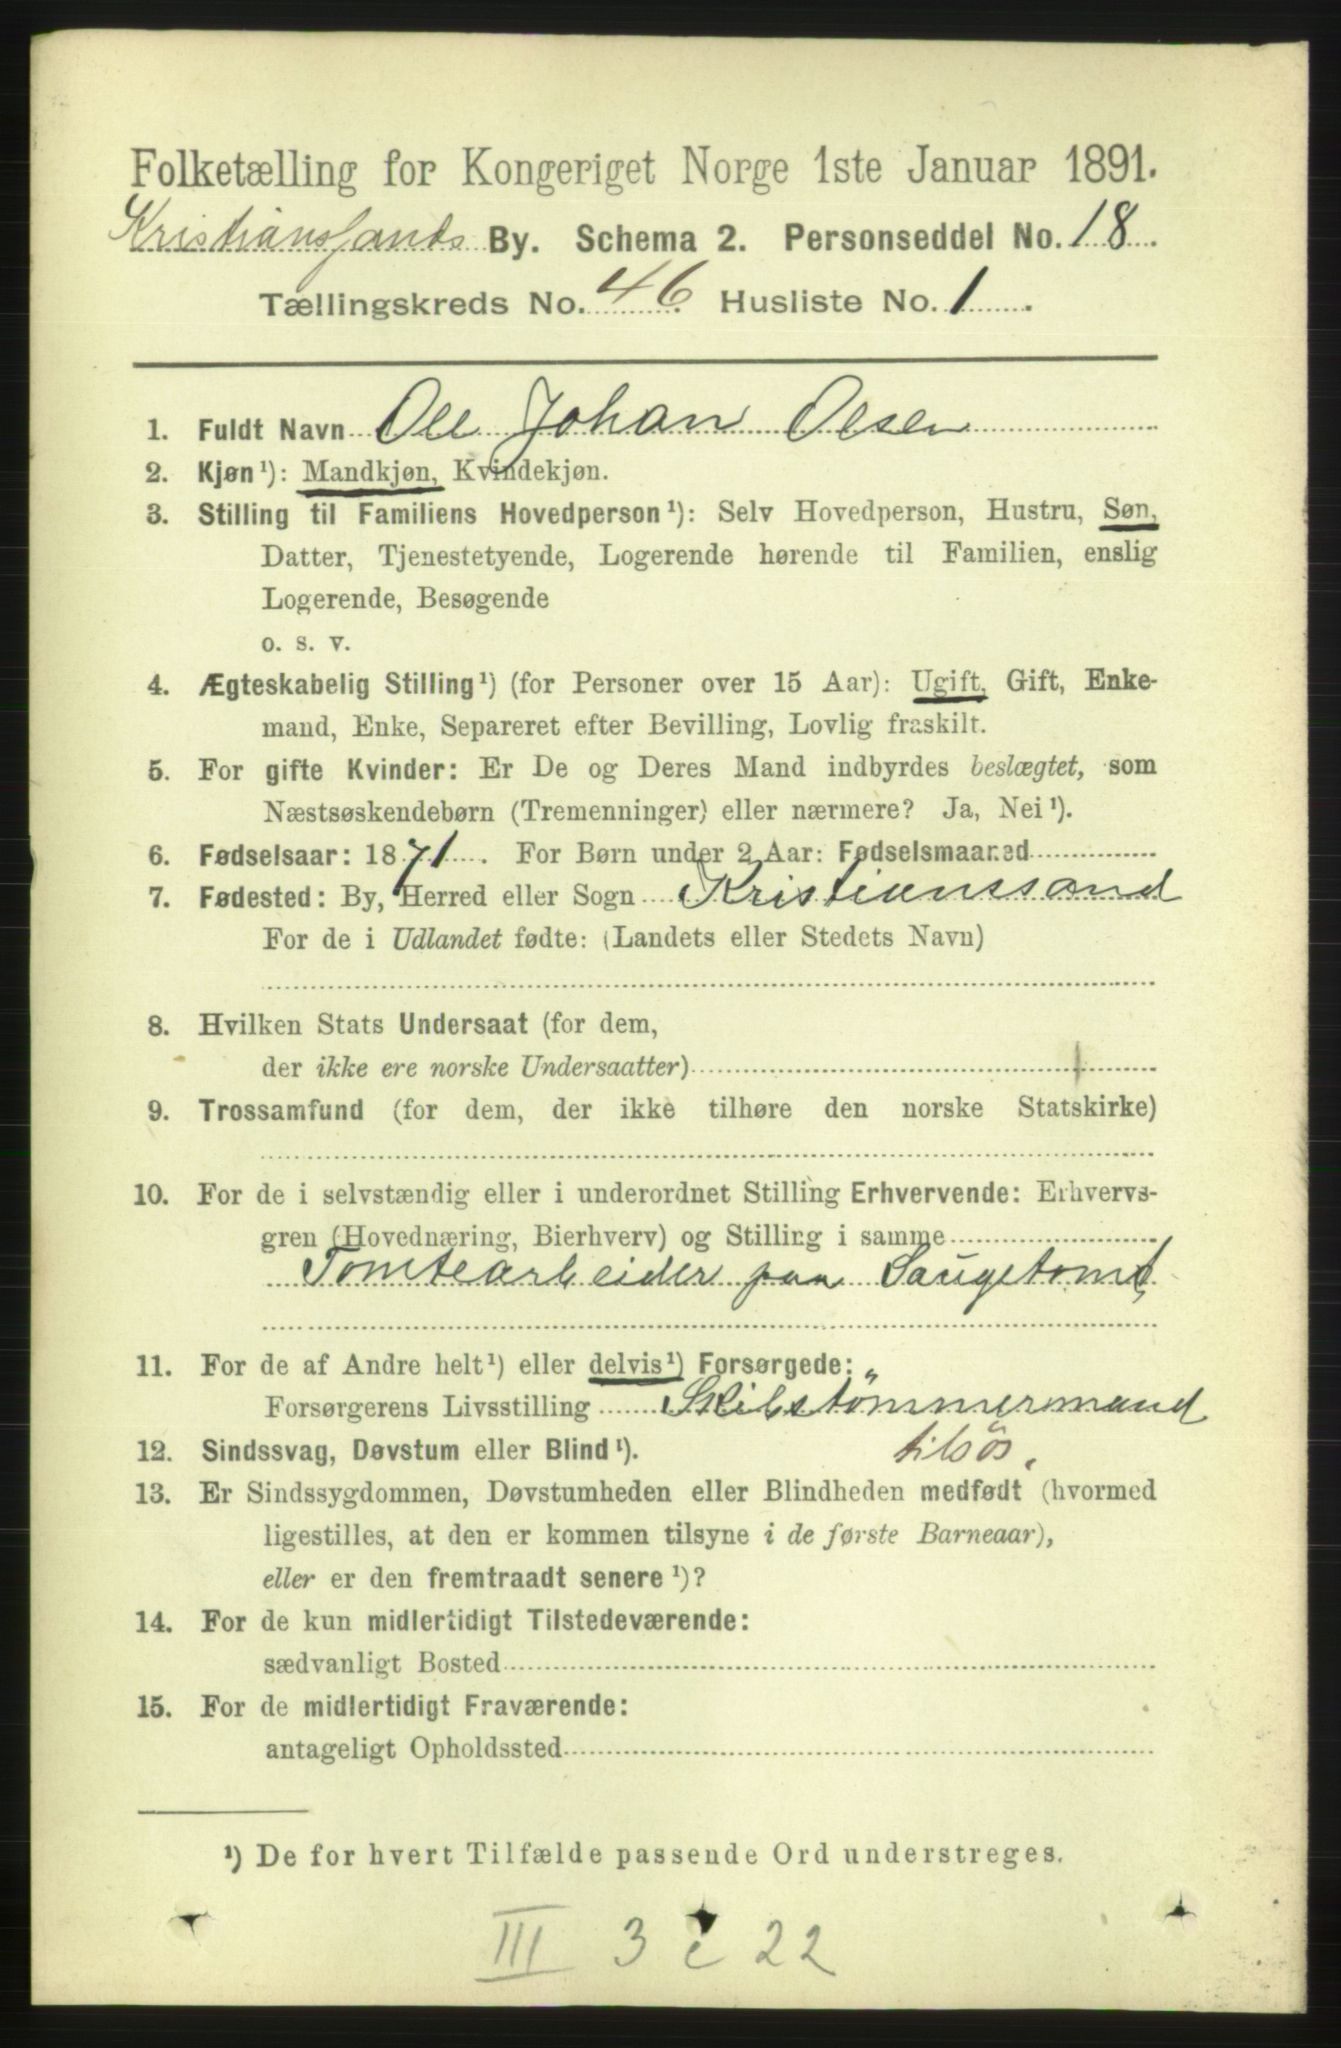 Folketælling for Kongeriget Norge 1ste Januar 1891.
Kristianssands By. Schema 2. Personseddel No. 18.
Tællingskreds No. 46. Husliste No. 1.
1. Fuldt Navn Ole Johan Olsen
2. Kjøn¹): Mandkjøn, Kvindekjøn.
3. Stilling til Familiens Hovedperson¹): Selv Hovedperson, Hustru, Søn,
Datter, Tjenestetyende, Logerende hørende til Familien, enslig
Logerende, Besøgende
o. s. v.
4. Ægteskabelig Stilling¹) (for Personer over 15 Aar): Ugift, Gift, Enke-
mand, Enke, Separeret efter Bevilling, Lovlig fraskilt.
5. For gifte Kvinder: Er De og Deres Mand indbyrdes beslægtet, som
Næstsøskendebørn (Tremenninger) eller nærmere? Ja, Nei¹).
6. Fødselsaar: 1871. For Børn under 2 Aar: Fødselsmaaned
7. Fødested: By, Herred eller Sogn Kristianssand
For de i Udlandet fødte: (Landets eller Stedets Navn)
8. Hvilken Stats Undersaat (for dem,
der ikke ere norske Undersaatter)
9. Trossamfund (for dem, der ikke tilhøre den norske Statskirke)
10. For de i selvstændig eller i underordnet Stilling Erhvervende: Erhvervs-
gren (Hovednæring, Bierhverv) og Stilling i samme
Tomtearbeider paa Saugetomt
11. For de af Andre helt¹) eller delvis¹) Forsørgede:
Forsørgerens Livsstilling Skibstømmermand
12. Sindssvag, Døvstum eller Blind¹). tilsøs.
13. Er Sindssygdommen, Døvstumheden eller Blindheden medfødt (hvormed
ligestilles, at den er kommen tilsyne i de første Barneaar),
eller er den fremtraadt senere¹)?
14. For de kun midlertidigt Tilstedeværende:
sædvanligt Bosted
15. For de midlertidigt Fraværende:
antageligt Opholdssted
¹) De for hvert Tilfælde passende Ord understreges.
III 3 c 22